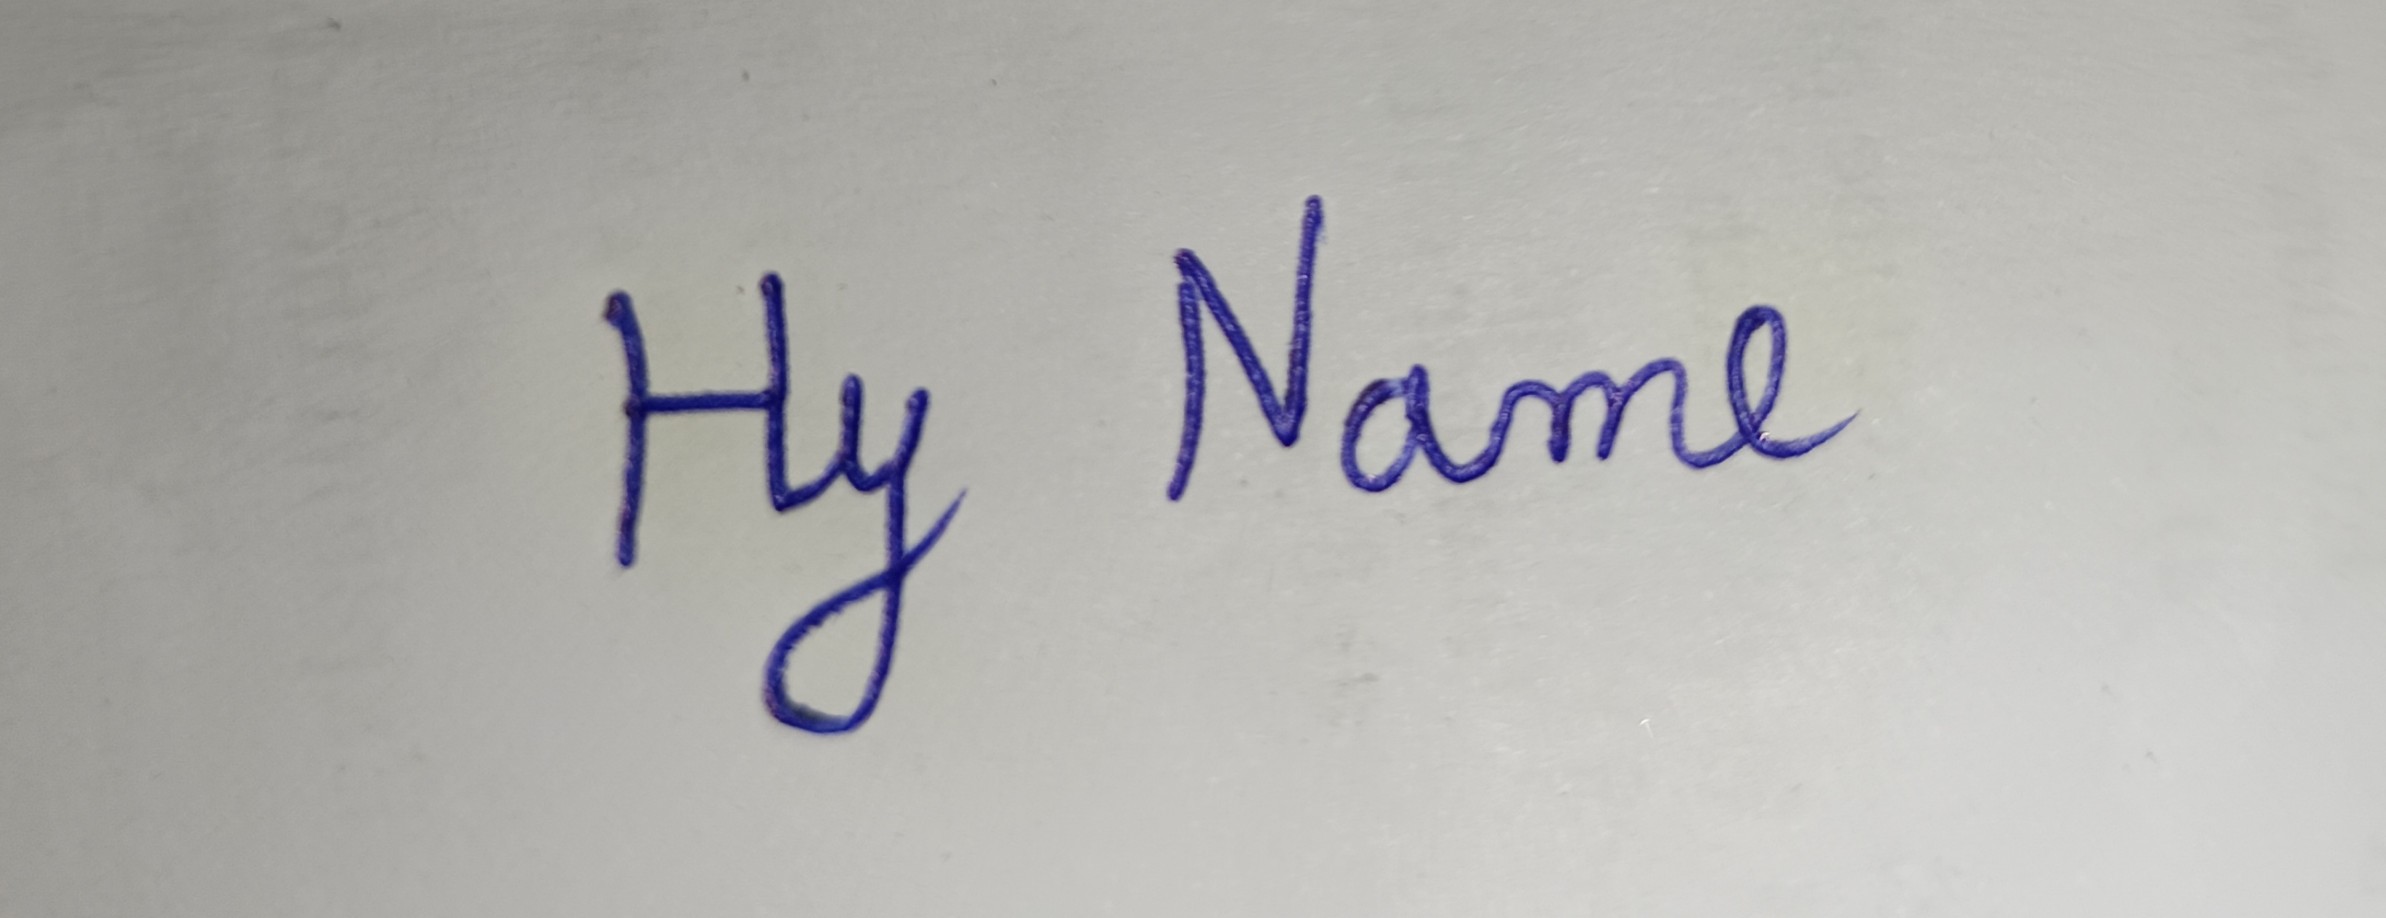 Hy Name